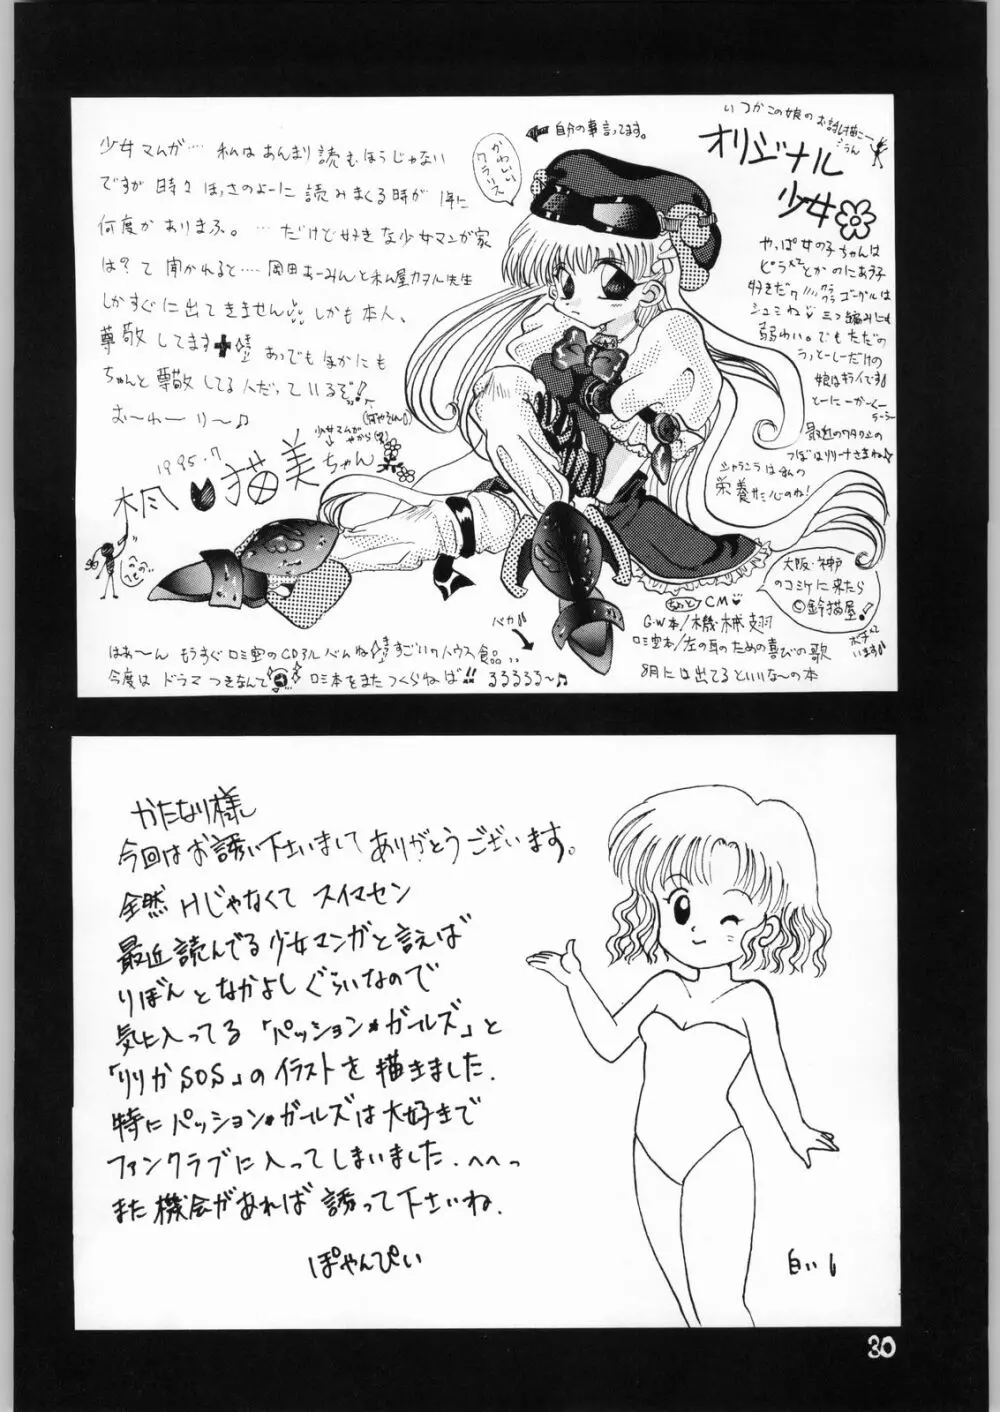 少女マムが… 私はあんまり読むほうじゃない
ですが 時々 ほっさのよーに 読みまくる時が 1年に
何度か ありまふ。…だけど好きな少女マンガ家
は?て 聞かれると…岡田あーみんと
先生
しか すぐに 出て きません しかも 本人、
尊敬してます あっ でも ほかにも
ちゃんと 尊敬してる人だっているぞ!
む〜わー り〜♪
1995.7
猫美ちゃん
少女マムが
自分の事言ってます。
かわいい
クラリス
いつかこの娘のお話し描こー
オリジナル
少女
やっぱ女の子ちゃんは
好きだワ
ゴーグルは
シュミね 三つ編みにも
弱わい。でも ただの
だけの
娘はキライです
最近のワタクシの
つぼはリリーナさまね☆
栄養
大阪・神戸
のコミケに来たら
©鈴猫屋!
ちょっと CM
G・W本/機・械・翅
ロミ空本/左の耳のための喜びの歌
8月には出てるといいな〜の本
バカ
はあ〜ん もうすぐ ロミ空のCDアルバムね すごいのハウス食品
今度は ドラマ つきなんで ロミ本を また つくらねば!! るるるるる〜♫
かたなり様
今回はお誘い下さいまして ありがとうございます。
全然 Hじゃなくて スイマセン
最近 読んでる 少女マンガと言えば
りぼんと なかよしぐらいなので
気に入ってる「パッション★ガールズ」と
「りりかSOS」の イラストを 描きました.
特に パッション★ガールズは 大好きで
ファンクラブに 入ってしまいました.へへっ
また 機会があれば 誘って 下さいね.
ぽやんぴい
白いし
30